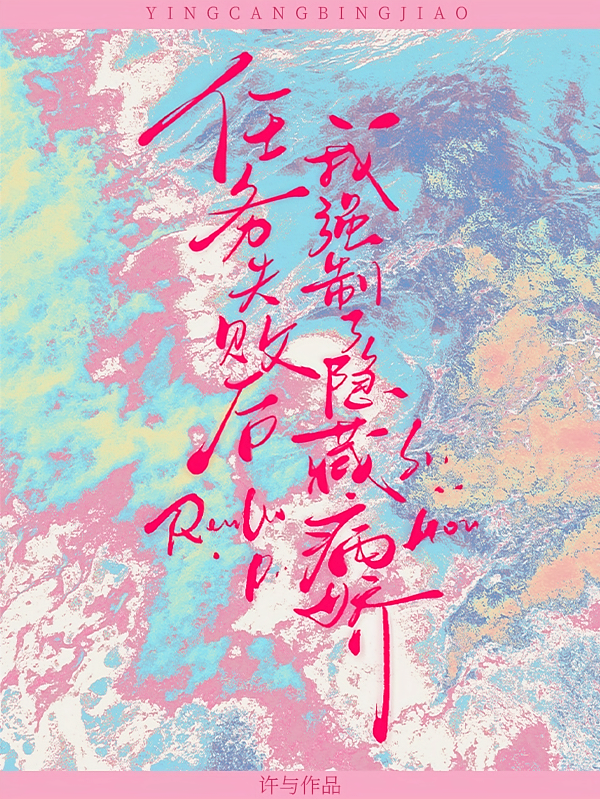 YINGCANGBINGJIAO
任务失败后
我强制了隐藏病娇
许与作品